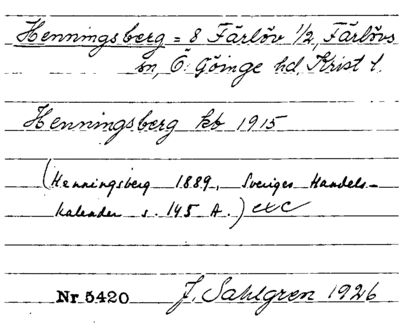 Henningsberg = 8 Färlöv 1/2, Färlövs
sn, Ö. Göinge hd, Krist l.
Henningsberg kb 1915
(Henningsberg 1889, Sveriges Handels-
kalender s. 145 A.) exc
Nr 5420 J. Sahlgren 1926